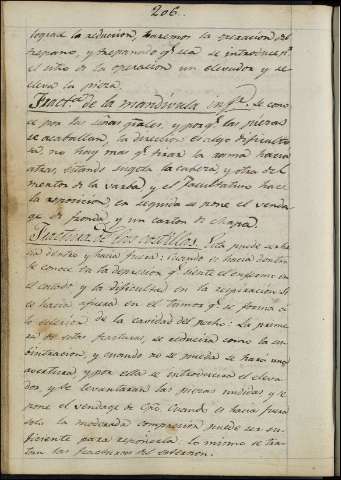 206.
lograr la reducion, haremos la operacion del
trepano, y trepanado qe sea se introduce pr
el sitio de la operacion un elevador y se
eleva la pieza.
Fractra de la mandivula infr. se cono-
ce por las señas grales, y porqe las piezas
se acaballan, la direccion es algo dificulto
sa, no hay mas qe tirar la rama hacia
atras, estando sugeta la cabeza, y otro del
menton de la barba y el Facultativo hace
la reposicion, en seguida se pone el venda
ge de fronda, y un carton de chapea.
Fractura de las costillas. Esta puede ser ha
cia dentro y hacia fuera: Cuando es hacia dentro
se conoce en la depresion qe siente el enfermo en
el costado y la dificultad en la respiracion. Si
es hacia fuera en el tumor qe se forma a
lo exterior de la cavidad del pecho: La prime
ra de estas fracturas, se reducira como la su-
bintracion, y cuando no se pueda se hará una
avertura y por ella se introducira el eleva
dor y se levantaran las piezas undidas y se
pone el vendage de Cpo. Cuando es hacia fuera
solo la moderada compresion puede ser su-
ficiente para reponerla. lo mismo se tra-
tan las fracturas del esternon.